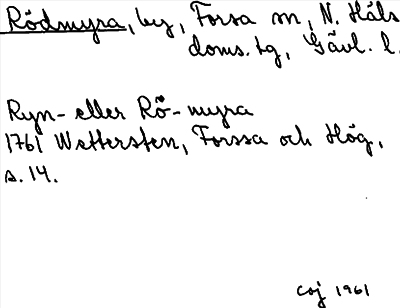 Rödmyra, by, Forsa sn, N. Häls
doms. tg, Gävl. l.
Ryn- eller Rö-myra
1761 Wettersten, Forssa och Hög,
s. 14.
coj 1961